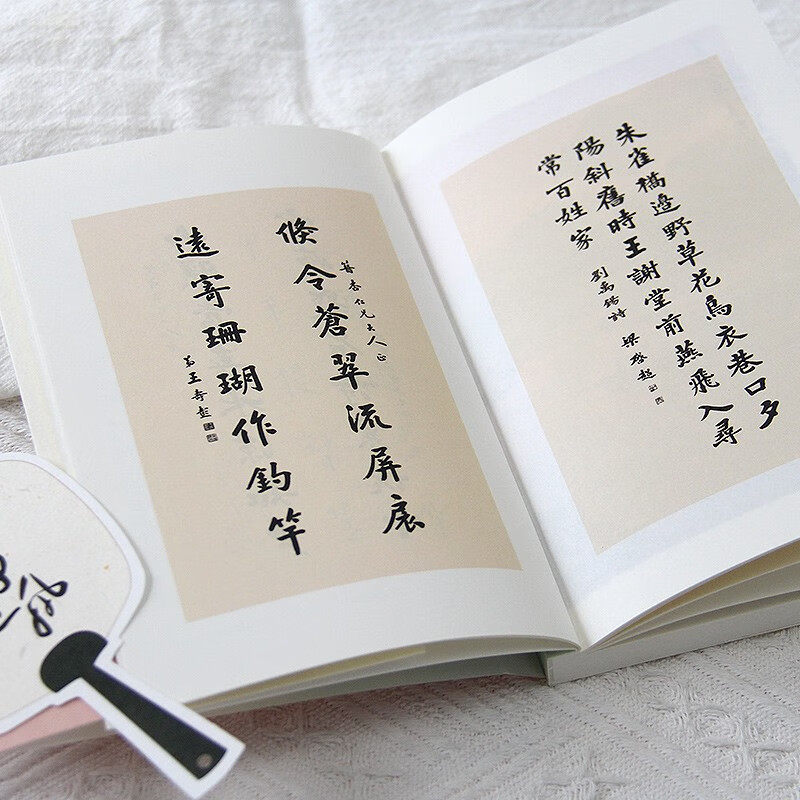 朱雀橋邊野草花烏衣巷口夕
陽斜舊時王謝堂前燕飛入尋
常百姓家
劉禹錫詩 梁啓超
仁兄大人正
倏令蒼翠流屏扆
遠寄珊瑚作釣竿
弟王壽彭